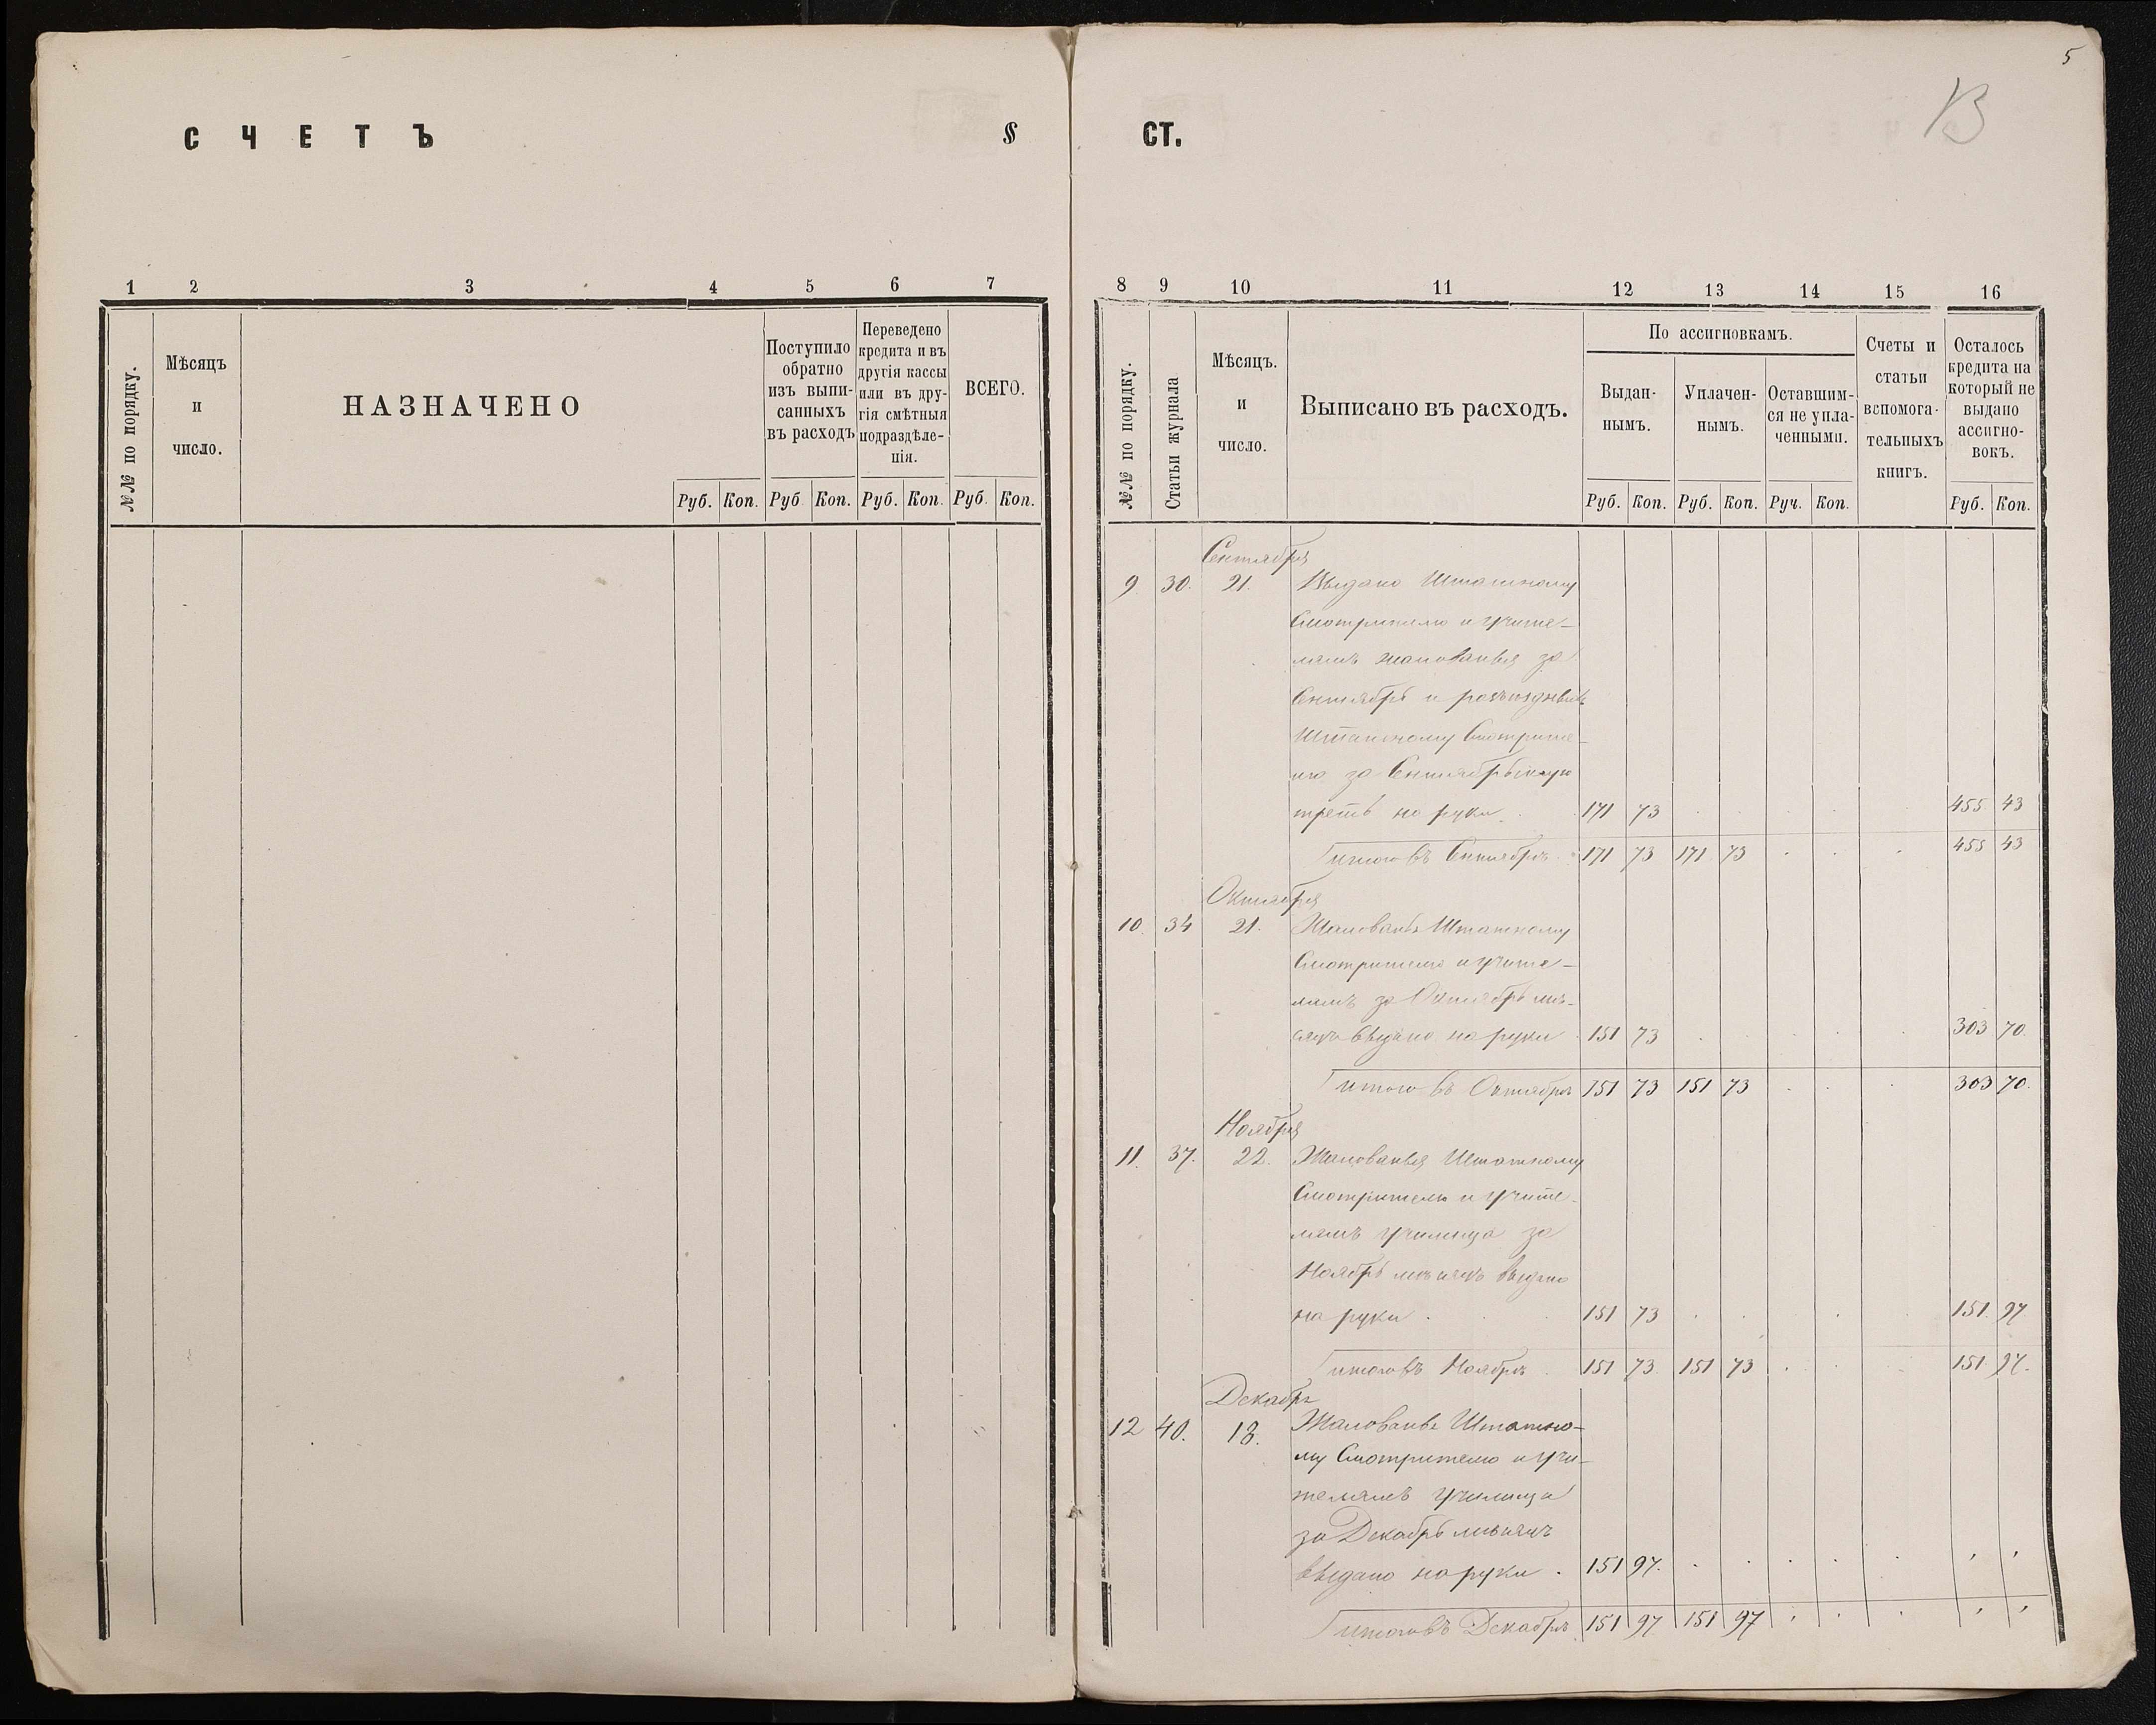 5
В
СЧЕТЪ § СТ.
1 2 3 4 5 6 7
№№ по порядку.
Мѣсяцъ и число.
НАЗНАЧЕНО
Поступило обратно изъ выписанныхъ въ расходъ
Переведено кредита и въ другія кассы или въ другія смѣтныя подраздѣленія.
ВСЕГО.
Руб. Коп. Руб Коп. Руб. Коп. Руб. Коп.
8 9 10 11 12 13 14 15 16
№№ по порядку.
Статьи журнала
Мѣсяцъ. и число.
Выписано въ расходъ.
По ассигновкамъ.
Выданнымъ.
Уплаченнымъ.
Оставшимся не уплаченными.
Счеты и статьи вспомогательныхъ книгъ.
Осталось кредита на который не выдано ассигновокъ.
Руб. Коп. Руб. Коп. Руч. Коп. Руб. Коп.
Сентября
9 30. 21. Выдано Штатному
Смотрителю и учите-
лямъ жалованья за
Сентябрь и разъѣздныхъ
Штатному Смотрите-
лю за Сентябрьскую
треть на руки. 171 73 455 43
Итого въ Сентябрѣ 171 73 171 73 455 43
Октября
10. 34 21. Жалованья Штатному
Смотрителю и учите-
лямъ за Октябрь мѣ-
сяцъ выдано на руки 151 73 303 70.
Итого въ Октябрѣ 151 73 151 73 303 70.
Ноября
11. 37. 22. Жалованья Штатному
Смотрителю и учите-
лямъ училища за
Ноябрь мѣсяцъ выдано
на руки 151 73 151. 97
Итого въ Ноябрѣ 151 73 151 73 151 97.
Декабря
12 40. 18. Жалованья Штатно-
му Смотрителю и учи-
телямъ училища
за Декабрь мѣсяцъ
выдано на руки. 151 97.
Итого въ Декабрѣ 151 97 151 97